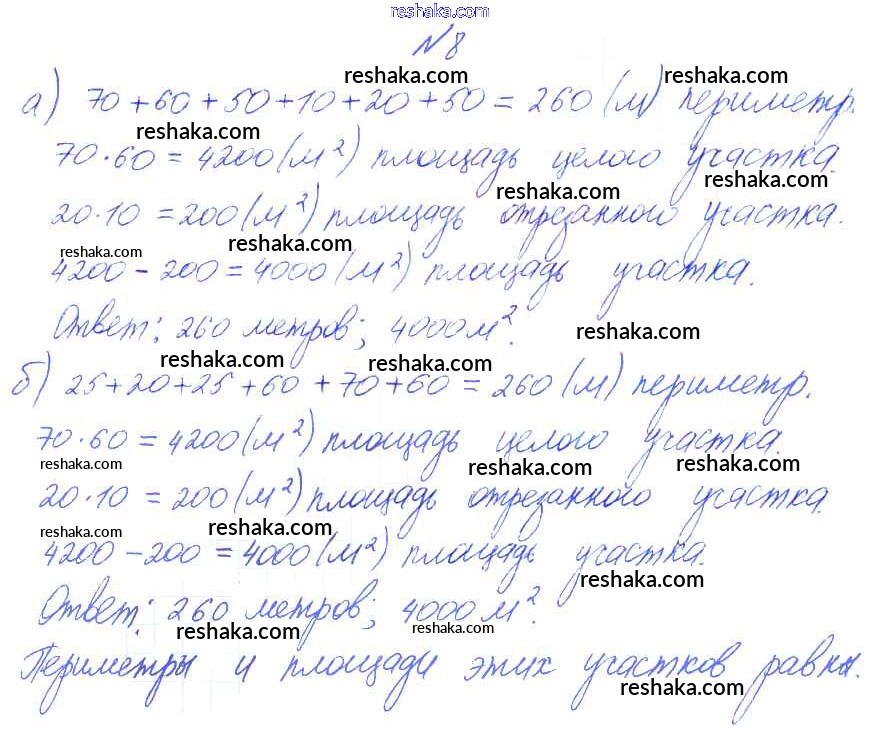 reshaka.com
№8
reshaka.com reshaka.com
а) 70+60+50+10+20+50=260 (м) периметр.
reshaka.com
70·60=4200(м²) площадь целого участка.
reshaka.com reshaka.com
20·10=200(м²) площадь отрезанного участка.
reshaka.com reshaka.com
4200-200=4000(м²) площадь участка.
Ответ: 260 метров; 4000м².
reshaka.com
reshaka.com reshaka.com
б) 25+20+25+60+70+60=260(м) периметр.
70·60=4200(м²) площадь целого участка.
reshaka.com reshaka.com reshaka.com
20·10=200(м²) площадь отрезанного участка.
reshaka.com reshaka.com
4200-200=4000(м²) площадь участка.
reshaka.com
Ответ: 260 метров; 4000м².
reshaka.com reshaka.com
Периметры и площади этих участков равны.
reshaka.com